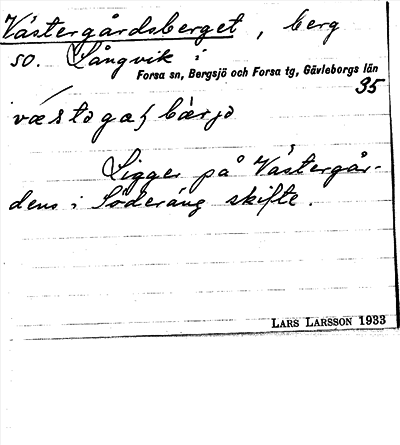 Västergårdsberget, berg
so. Långvik i
Forsa sn, Bergsjö och Forsa tg, Gävleborgs län
35
Ligger på Västergår-
dens i Söderäng skifte.
LARS LARSSON 1933